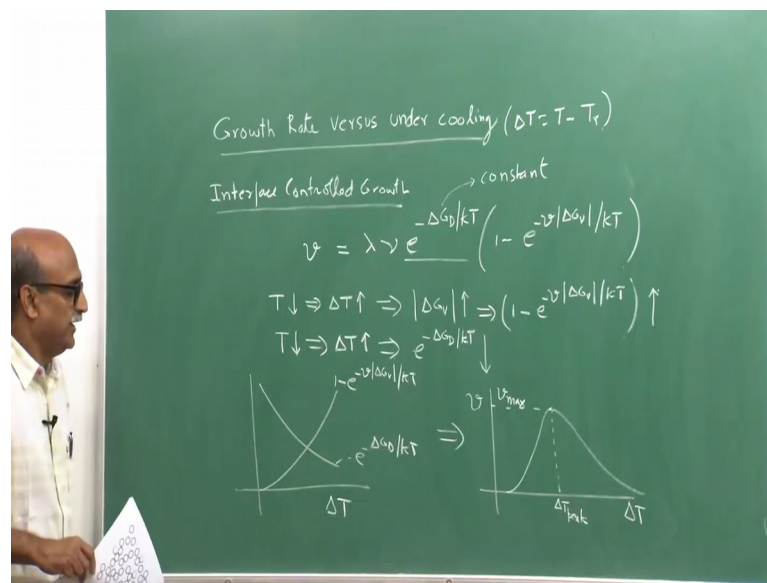 Growth Rate versus under cooling (ΔT = T - Tr)
Interface Controlled Growth
constant
v = λ ν e^{-ΔG_D/kT} (1 - e^{-v|ΔG_v|/kT})
T↓ ⇒ ΔT↑ ⇒ |ΔG_v|↑ ⇒ (1 - e^{-v|ΔG_v|/kT}) ↑
T↓ ⇒ ΔT↑ ⇒ e^{-ΔG_D/kT} ↓
1 - e^{-v|ΔG_v|/kT}
e^{-ΔG_D/kT}
ΔT
⇒
v
v_max
ΔT_peak
ΔT